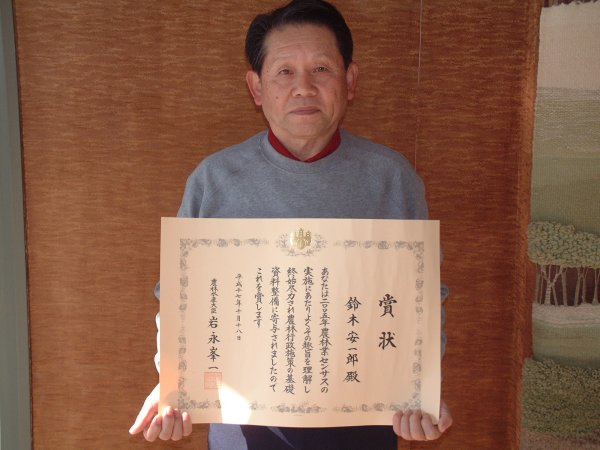 賞状
鈴木安一郎殿
あなたは二〇〇五年農林業センサスの
実施にあたりよくその趣旨を理解し
終始尽力され農林行政施策の基礎
資料整備に寄与されましたので
これを賞します
平成十七年十月十八日
農林水産大臣 岩永峯一